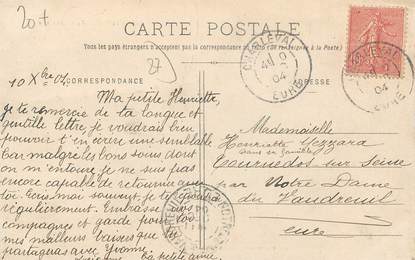 20+
CARTE POSTALE
Tous les pays étrangers n'acceptent pas la correspondance au (se renseigner à la Poste)
27
CHARLEVAL
04
EURE
CORRESPONDANCE
ADRESSE
10 Xbre 04
Ma petite Henriette,
Je te remercie de ta longue et
gentille lettre, je voudrais bien
pouvoir t'en écrire une semblable
Car malgré les bons soins dont
on m'entoure je ne suis pas
encore capable de retourner avec
toi. Sois mignonne, je t'écrirai
régulièrement. Embrasse nos
compagnes et garde pour toi
mes meilleurs baisers que
partageras avec Yvonne.
ta petite amie
Mademoiselle
Henriette
dans sa famille
Tournedos sur Seine
par Notre Dame
du Vaudreuil
Eure